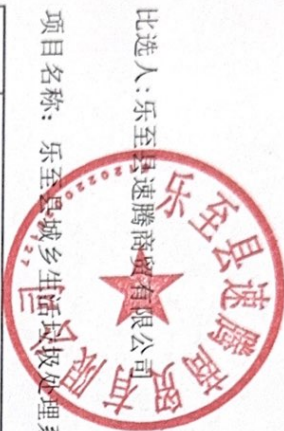 比选人：乐至县速腾商贸有限公司
项目名称：乐至县城乡生活垃圾处理
乐至县速腾商贸有限公司